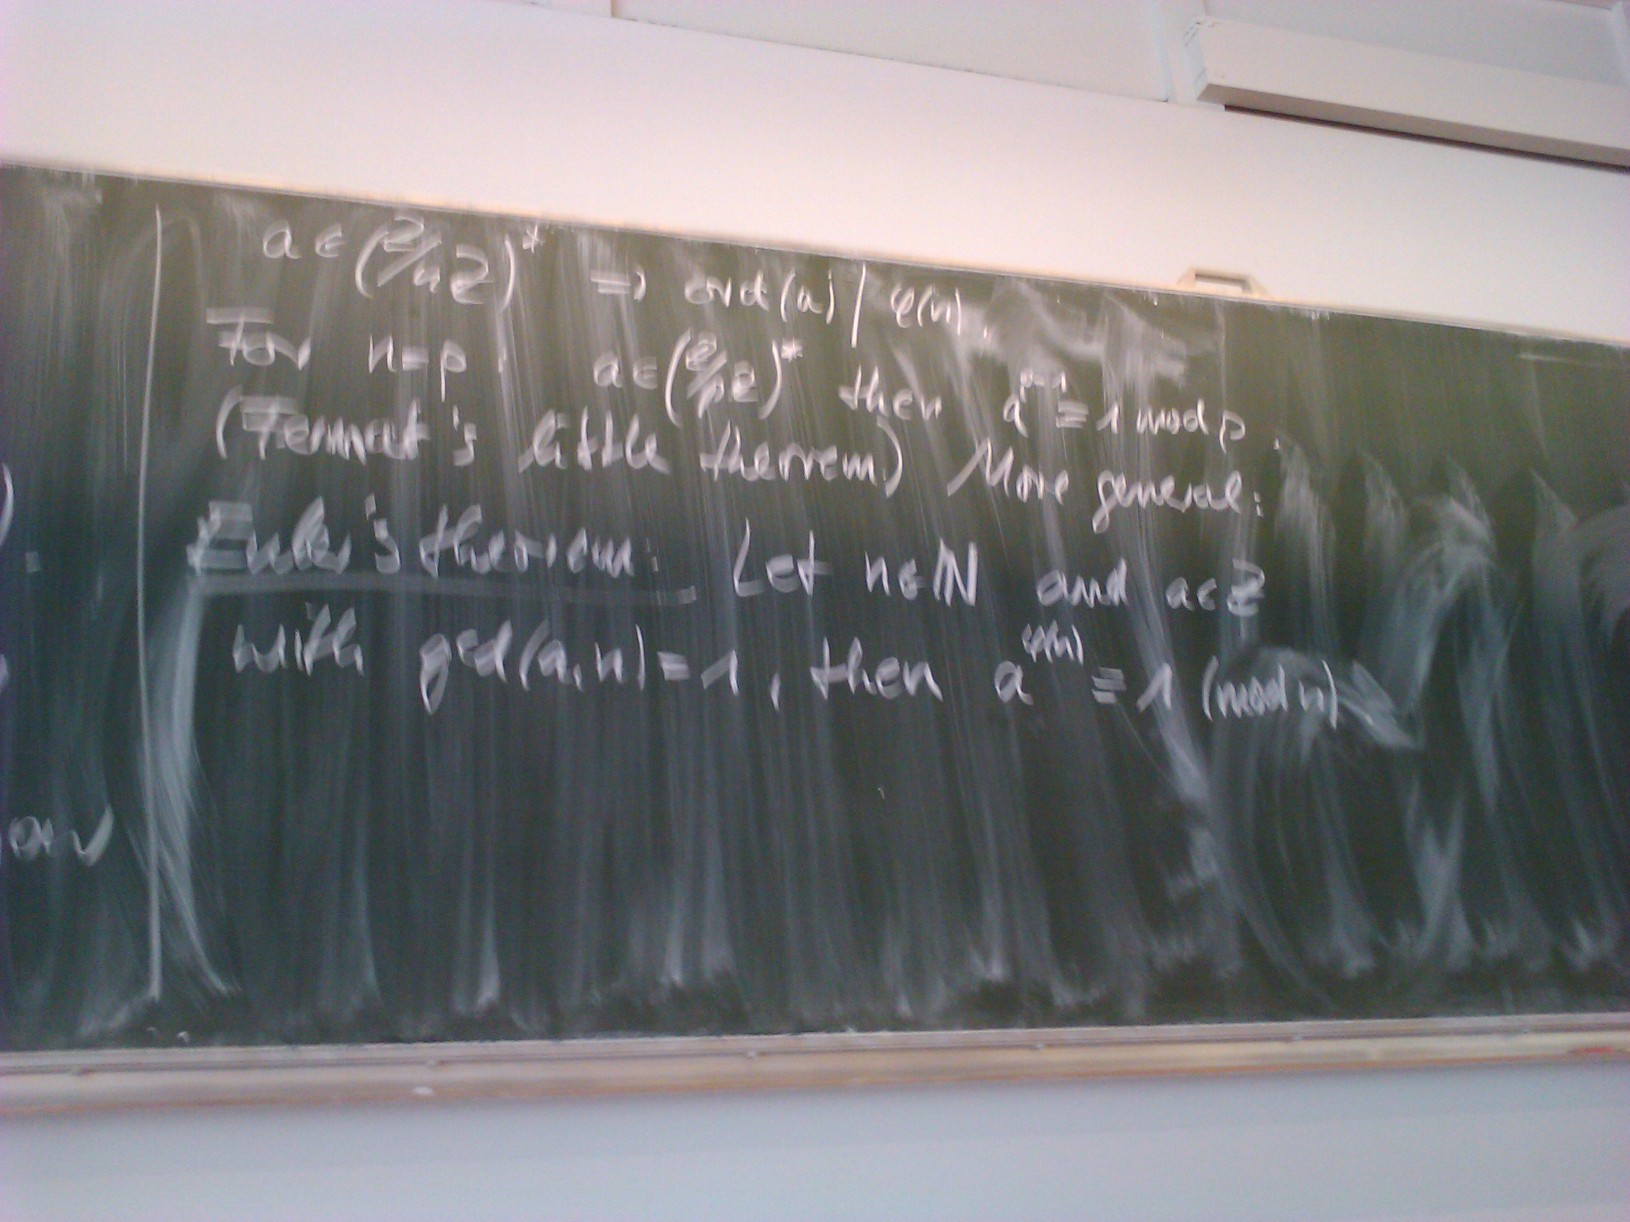 a ∈ (Z/nZ)* ⇒ ord(a) | φ(n).
For n=p: a ∈ (Z/pZ)* then a^{p-1} ≡ 1 mod p.
(Fermat's little theorem) More general:
Euler's theorem: Let n∈ℕ and a∈Z
with gcd(a,n)=1, then a^{φ(n)} ≡ 1 (mod n)